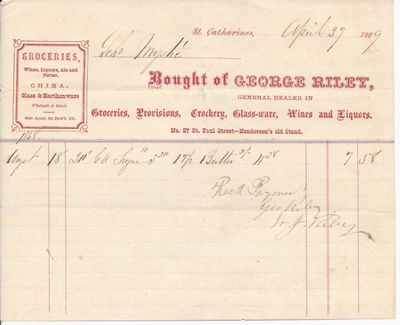 St. Catharines, April 27 1869
GROCERIES,
Wines, Liquors, Ale and
Porter,
CHINA,
Glass & Earthenware
Wholesale & Retail.
Sole Agent for Dow's Ale.
Bought of GEORGE RILEY,
GENERAL DEALER IN
Groceries, Provisions, Crockery, Glass-ware, Wines and Liquors.
No. 27 St. Paul Street—Henderson's old Stand.
1868
18 Butter 7 58
Recd Payment
Geo Riley